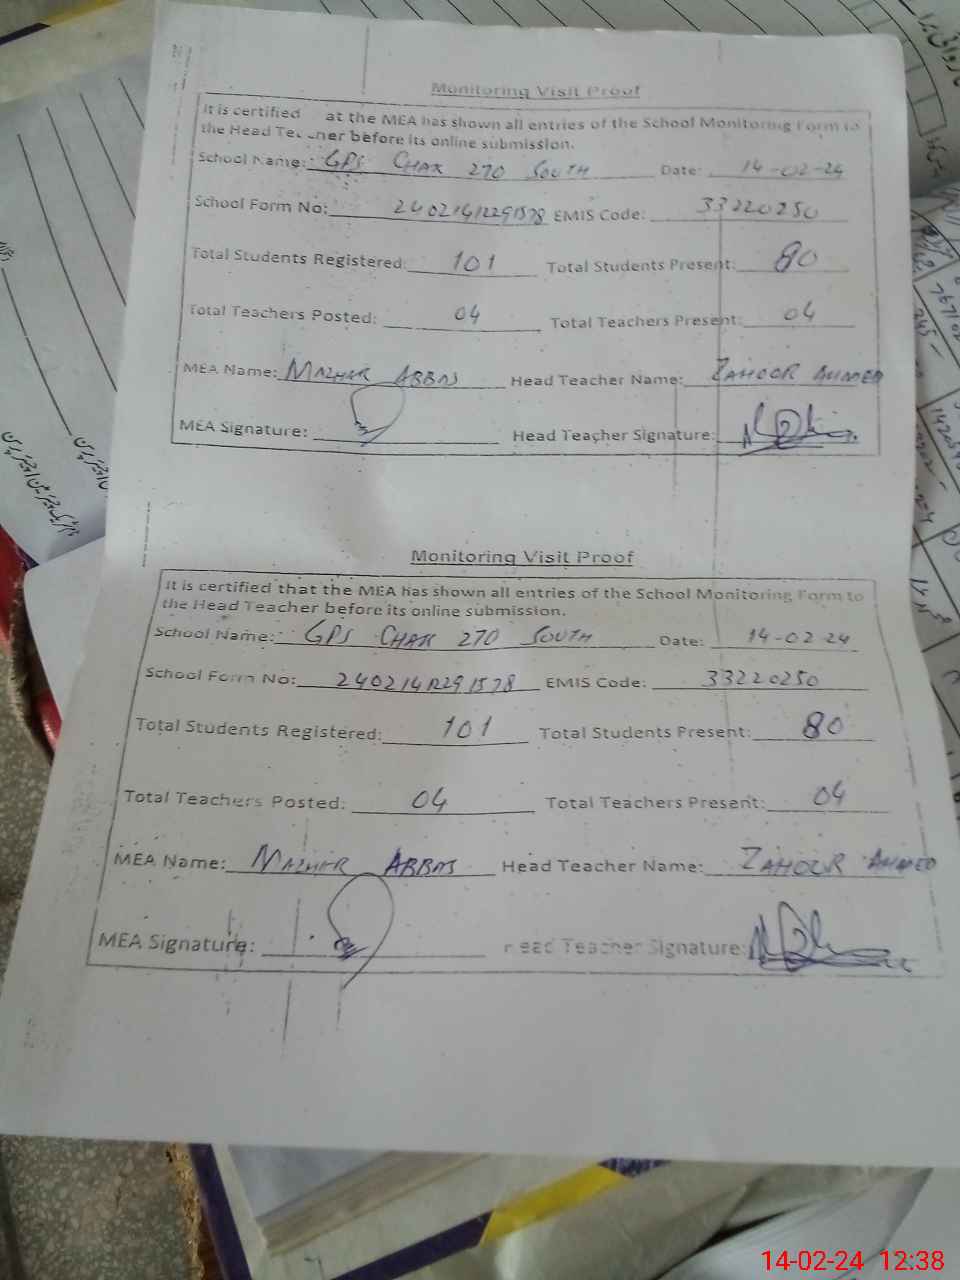 Monitoring Visit Proof
It is certified at the MEA has shown all entries of the School Monitoring Form to
the Head Teacher before its online submission.
School Name: GPS CHAK 270 SOUTH Date: 14-02-24
School Form No: 24021412291578 EMIS Code: 33220250
Total Students Registered: 101 Total Students Present: 80
Total Teachers Posted: 04 Total Teachers Present: 04
MEA Name: MAZHAR ABBAS Head Teacher Name: ZAHOOR AHMED
MEA Signature: Head Teacher Signature:
Monitoring Visit Proof
It is certified that the MEA has shown all entries of the School Monitoring Form to
the Head Teacher before its online submission.
School Name: GPS CHAK 270 SOUTH Date: 14-02-24
School Form No: 24021412291578 EMIS Code: 33220250
Total Students Registered: 101 Total Students Present: 80
Total Teachers Posted: 04 Total Teachers Present: 04
MEA Name: MAZHAR ABBAS Head Teacher Name: ZAHOOR AHMED
MEA Signature: Head Teacher Signature:
14-02-24 12:38